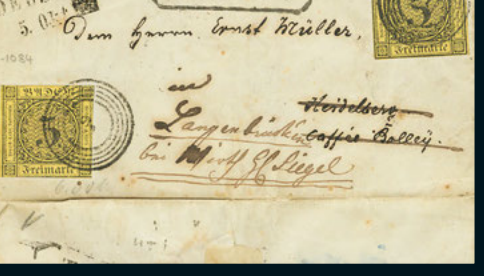 5. Okt
1084
Dem Herrn Ernst Müller,
Freimarke
in
Heidelberg
BADEN
Langenbrücken
Caffée Balley.
5
bei Wirth Siegel
Freimarke